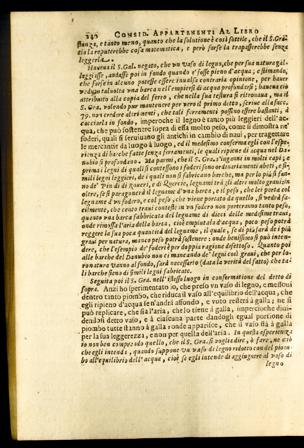 240 CONSID. APPARTENENTI AL LIBRO
stanza, e tanto meno, quanto che la solutione è così sottile, che il S. Gra-
zia la reputerebbe cosa matematica, e però forse la trapasserebbe senza
leggerla.
Haveva il S. Gal. negato, che un vaso di legno, che per sua natura gal-
leggi isse, andasse poi in fondo quando e' fusse pieno d'acqua, e stimando,
che forse in alcuno potesse essere invalsa contraria opinione, per haver
veduto talvolta una barca nell'empiersi di acqua profondarsi; haveva ciò
attribuito alla copia del ferro, che nella sua testura si ritrovava, ma il
S. Grazia, volendo pur mantener per vero il primo detto, scrive alla fac.
79. non credere altri menti, che tali ferramenti possino essere bastanti, à
cacciarla in fondo, imperoche il legno è tanto più leggieri dell'ac-
qua, che può sostenere sopra di essa molto peso, come si dimostra ne'
foderi, quali si servivano gli antichi in cambio di navi, per tragettare
le mercantie da luogo à luogo, ed il medesimo conferma egli con l'espe-
rienza di barche fatte senza ferramenti, le quali ripiene di acqua nel Da-
nubio si profondano. Ma parmi, che il S. Grazia s'inganni in molti capi;
prima i legni di quali si contessono i foderi sono ordinariamente abeti, e si-
mili legni leggieri, de i quali non si fabbricano barche, ma per lo più si fan-
no de' Pini di Roveri, di Querce, legnami trà gli altri molto gravi: in
oltre, se si paragonerà il legname d'una barca, e il peso, che lei porta col
legname d'un fodero, e col peso, che viene portato da quello, si vedrà fa-
cilmente, che cento travi contesti in un fodero non porteranno tanto peso,
quanto una barca fabbricata del legname di dieci delle medesime travi,
onde rimossa l'aria della barca, cioè empiuta d'acqua, poco peso potrà
reggere la sua poca quantità del legname, il quale, se di più sarà de i più
gravi per natura, manco peso potrà sostenere: onde benissimo si può inten-
dere, che l'esempio de' foderi è per doppia ragione difettoso. Quanto poi
alle barche del Danubio non ci mancando de' legni così gravi, che per lo-
ro natura vanno al fondo, sarà necessario (data la verità del fatto) che ta-
li barche sieno di simili legni fabricate.
Seguita poi il S. Grazia. nell'istesso luogo in confermatione del detto di
sopra. Anzi hò sperimentato io, che preso un vaso di legno, e messovi
dentro tanto piombo, che riduca il vaso all'equilibrio dell'acqua, che
egli ripieno d'acqua se n'andrà al fondo, e voto resterà à galla; ne si
può replicare, che sia l'aria, che lo tiene à galla, imperoche divi-
dendosi detto vaso, e à ciascuna parte dandogli egual portione di
piombo tutte stanno à galla, onde apparisce, che il vaso stà à galla
per la sua leggerezza, e non per quella dell'aria. In questa esperienza
io non ben comprendo quello, che il S. Gra. si voglia dire, ò fare, ne ciò
che egli intenda, quando suppone un vaso di legno ridotto con del piom-
bo all'equilibrio dell'acqua, cioè se egli intende di aggiugnere al vaso di
legno